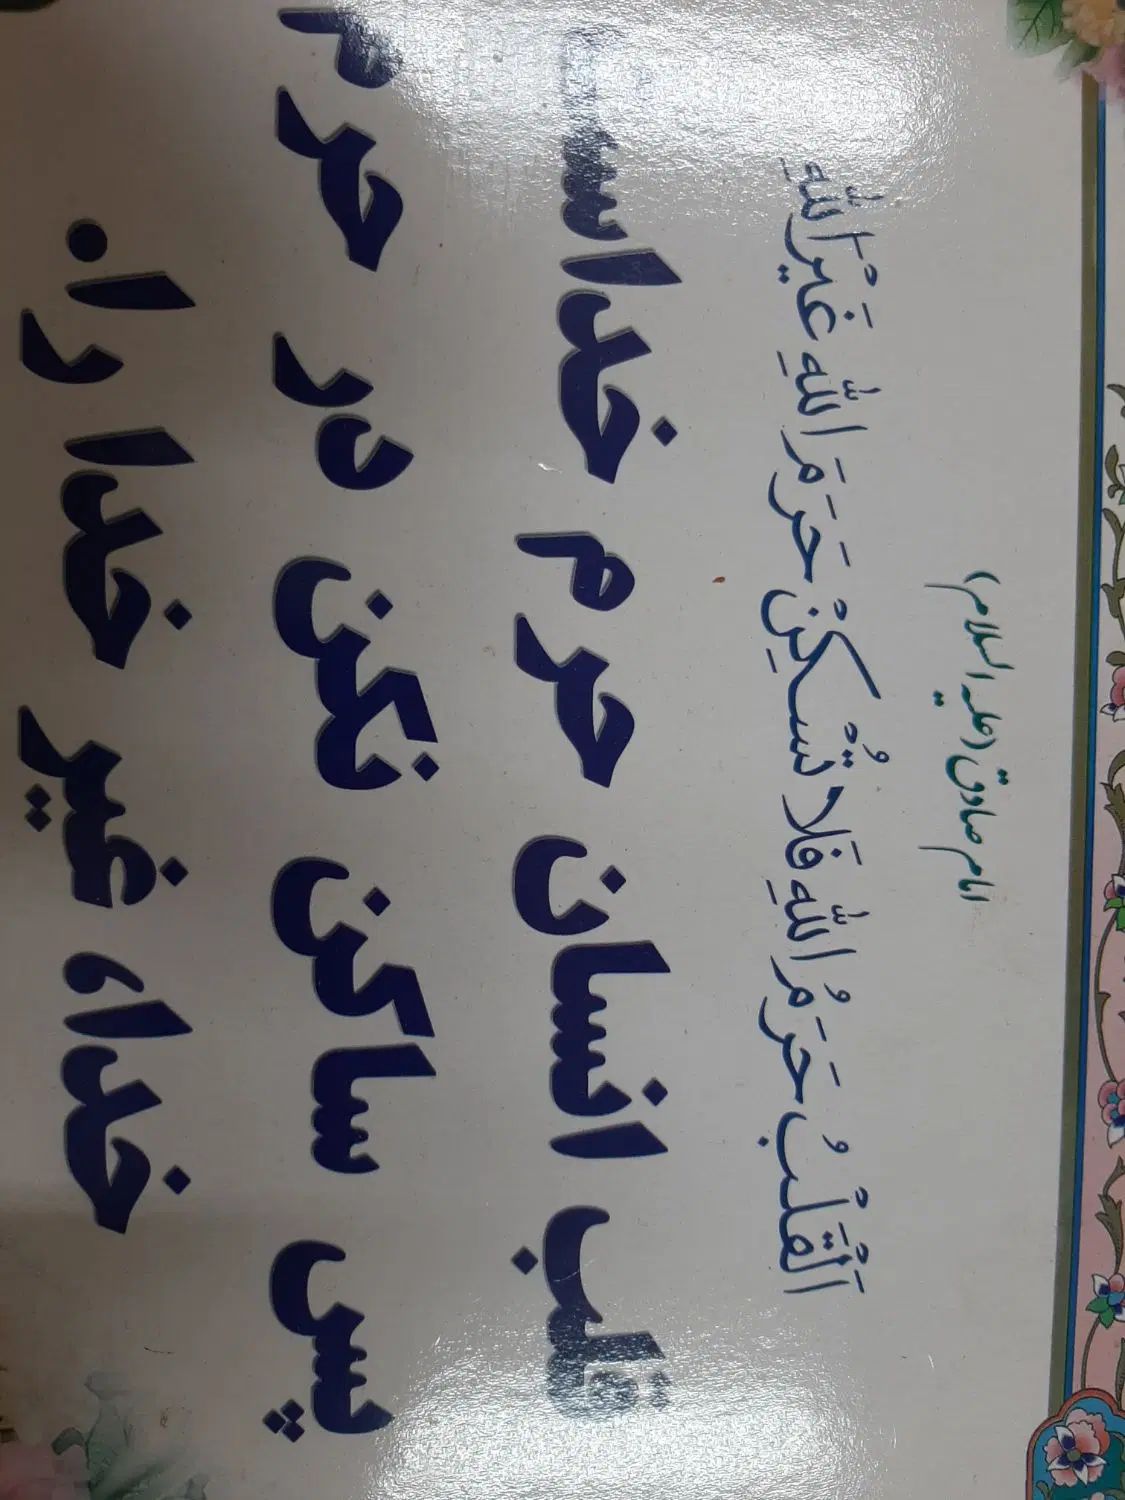 امام صادق (علیه السلام)
اَلْقَلْبُ حَرَمُ اللّٰهِ فَلَا تُسْكِنْ حَرَمَ اللّٰهِ غَيْرَ اللّٰهِ
قلب انسان حرم خداست
پس ساکن نکن در حرم
خداء غیر خدا را.